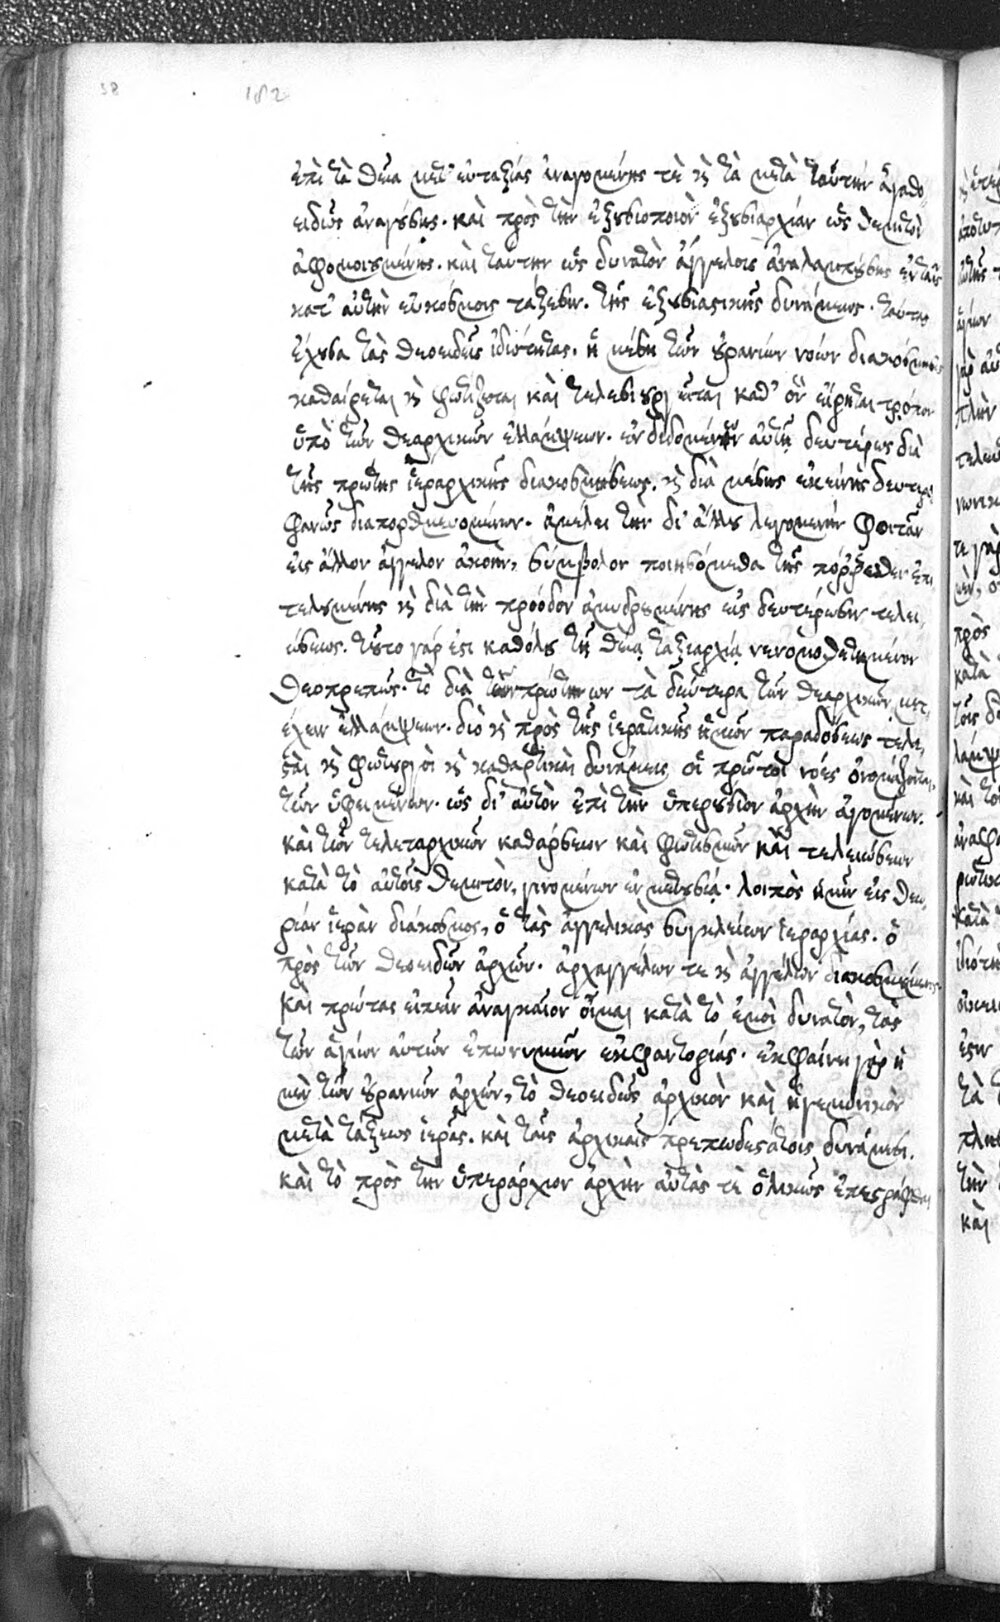 38 182
ἐπὶ τὰ θεῖα μετ' εὐταξίας ἀναγομένης τὲ κ τὰ μετὰ ταύτην ἀγαθο
ειδῶς ἀναγούσης. καὶ πρὸς τὴν ἐξουσιοποιὸν ἐξουσιαρχίαν ὡς θεμιτὸν
ἀφομοιουμένης. καὶ ταύτην ὡς δυνατὸν ἀγγέλοις ἀναλαμπούσης ἐν ταῖς
κατ' αὐτὴν εὐκόσμοις τάξεσιν. τῆς ἐξουσιαστικῆς δυνάμεως. ταύτας
ἔχουσα τὰς θεοειδεῖς ἰδιότητας. ἡ μέση τῶν οὐρανίων νοῶν διακόσμησις
καθαίρεται κ φωτίζεται καὶ τελεσιουργεῖται καθ' ὃν εἴρηται τρόπον
ὑπὸ τῶν θεαρχικῶν ἐλλάμψεων. ἐνδιδομένων αὐτῇ δευτέρως διὰ
τῆς πρώτης ἱεραρχικῆς διακοσμήσεως. κ διὰ μέσης ἐκείνης δευτερο
φανῶς διαπορθμευομένων. ἀμέλει τὴν δι' ἄλλου λεγομένην φοιτᾶν
εἰς ἄλλον ἄγγελον ἀκοὴν, σύμβολον ποιησόμεθα τῆς πόῤῥωθεν ἐπι
τελουμένης κ διὰ τὴν πρόοδον ἀμυδρουμένης εἰς δευτέρωσιν τελει
ώσεως. τοῦτο γάρ ἐστι καθόλου τῇ θείᾳ ταξιαρχίᾳ νενομοθετημένον
θεοπρεπῶς. τὸ διὰ τῶν πρώτων τὰ δεύτερα τῶν θεαρχικῶν μετ
έχειν ἐλλάμψεων. διὸ κ πρὸς τῆς ἱερατικῆς ἡμῶν παραδόσεως τελε
σταὶ κ φωτουργοὶ κ καθαρτικαὶ δυνάμεις οἱ πρῶτοι νόες ὀνομάζονται,
τῶν ὑφειμένων. ὡς δι' αὐτῶν ἐπὶ τὴν ὑπερούσιον ἀρχὴν ἀγομένων.
καὶ τῶν τελεταρχικῶν καθάρσεων καὶ φωτισμῶν καὶ τελειώσεων
κατὰ τὸ αὐτοῖς θεμιτὸν, γινομένων ἐν μετουσίᾳ. λοιπὸς ἡμῖν εἰς θεω
ρίαν ἱερὰν διάκοσμος, ὁ τὰς ἀγγελικὰς συγκλείων ἱεραρχίας. ὁ
πρὸς τῶν θεοειδῶν ἀρχῶν. ἀρχαγγέλων τε κ ἀγγέλων διακοσμούμενος
καὶ πρώτας εἰπεῖν ἀναγκαῖον οἶμαι κατὰ τὸ ἐμοὶ δυνατὸν, τὰς
τῶν ἁγίων αὐτῶν ἐπωνυμιῶν ἐκφαντορίας. ἐκφαίνει γὰρ ἡ
μὲν τῶν οὐρανίων ἀρχῶν, τὸ θεοειδῶς ἀρχικὸν καὶ ἡγεμονικὸν
μετὰ τάξεως ἱερᾶς. καὶ ταῖς ἀρχικαῖς πρεπωδεστάτοις δυνάμεσι.
καὶ τὸ πρὸς τὴν ὑπεράρχιον ἀρχὴν αὐτάς τὲ ὁλικῶς ἐπεστράφθαι